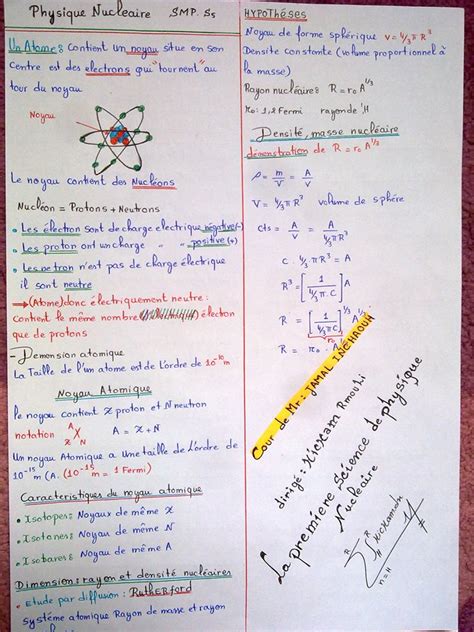 Physique Nucleaire SMP. S5
Un Atome : contient un noyau situe en son
centre est des electrons qui "tournent" au
tour du noyau
Noyau
Le noyau contient des Nucléons
Nucléon = Protons + Neutrons
• Les électron sont de charge électrique negative (-)
• Les proton ont un charge " " positive (+)
• Les netron n'est pas de charge électrique
il sont neutre
→ (Atome) donc électriquement neutre :
contient le même nombre électron
que de protons
- Demonsion atomique
La Taille de l'un atome est de L'ordre de 10⁻¹⁰ m
Noyau Atomique
Le noyau contient Z proton et N neutron
notation A X Z N A = Z + N
Un noyau Atomique a une taille de L'ordre de
10⁻¹⁵ m (A. (10⁻¹⁵ m = 1 Fermi)
Caracteristiques du noyau atomique
• Isotopes : Noyaux de même Z
• Isotones : Noyau de même N
• Isobares : Noyau de même A
Dimension : rayon et densité nucléaires
• Etude par diffusion : Rutherford
systéme atomique Rayon de masse et rayon
HYPOTHéses
Noyau de forme sphérique V = 4/3 π R³
Densite constante (volume proportionnel à
la masse)
Rayon nucléaire : R = r₀ A^1/3
r₀ : 1,2 Fermi rayon de 'H
- Densité, masse nucléaire
démonstration de R = r₀ A^1/3
ρ = m/v = A/v
V = 4/3 π R³ volume de sphére
cts = A/v = A/(4/3 π R³)
C . 4/3 π R³ = A
R³ = [1/(4/3 π . C)] A
R = [1/(4/3 π C)]^1/3 A^1/3
Cour de Mr : JAMAL INCHAOUH
dirigé : Hicxam Rmouhi
La première Science de physique
Nucleaire